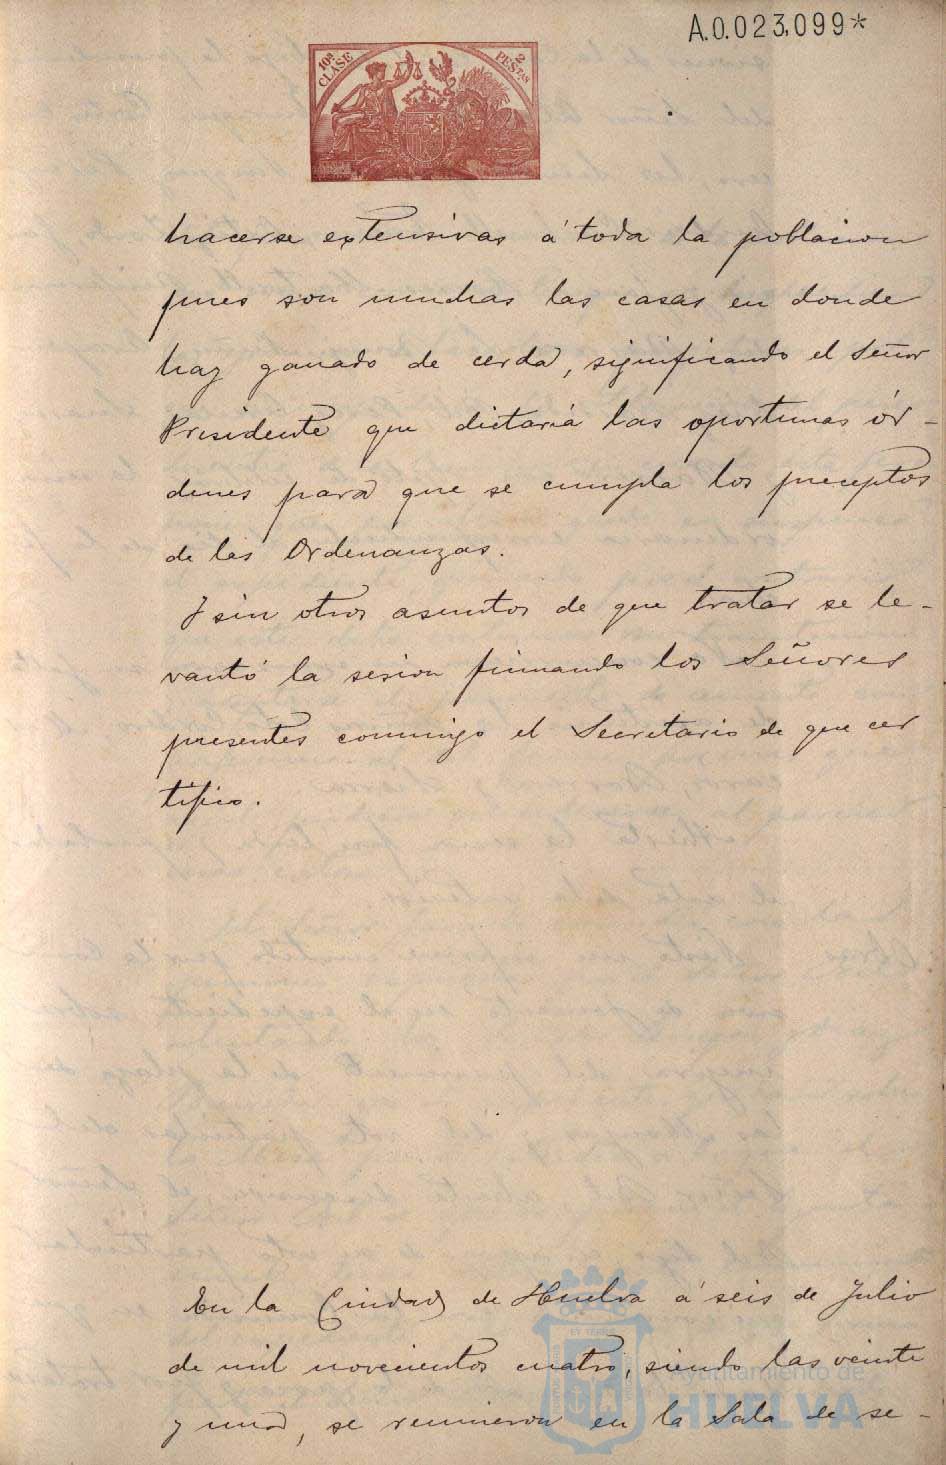 A.0.023,099*
10ª CLASE
2 PESTAS
hacerse extensivas á toda la poblacion
pues son muchas las casas en donde
hay ganado de cerda, significando el Señor
Presidente que dictaria las oportunas ór-
denes para que se cumpla los preceptos
de las Ordenanzas.
Y sin otros asuntos de que tratar se le-
vantó la sesion firmando los Señores
presentes conmigo el Secretario de que cer
tifico.
En la Ciudad de Huelva á seis de Julio
de mil novecientos cuatro, siendo las veinte
y una, se reunieron en la Sala de se-
Ayuntamiento de
HUELVA